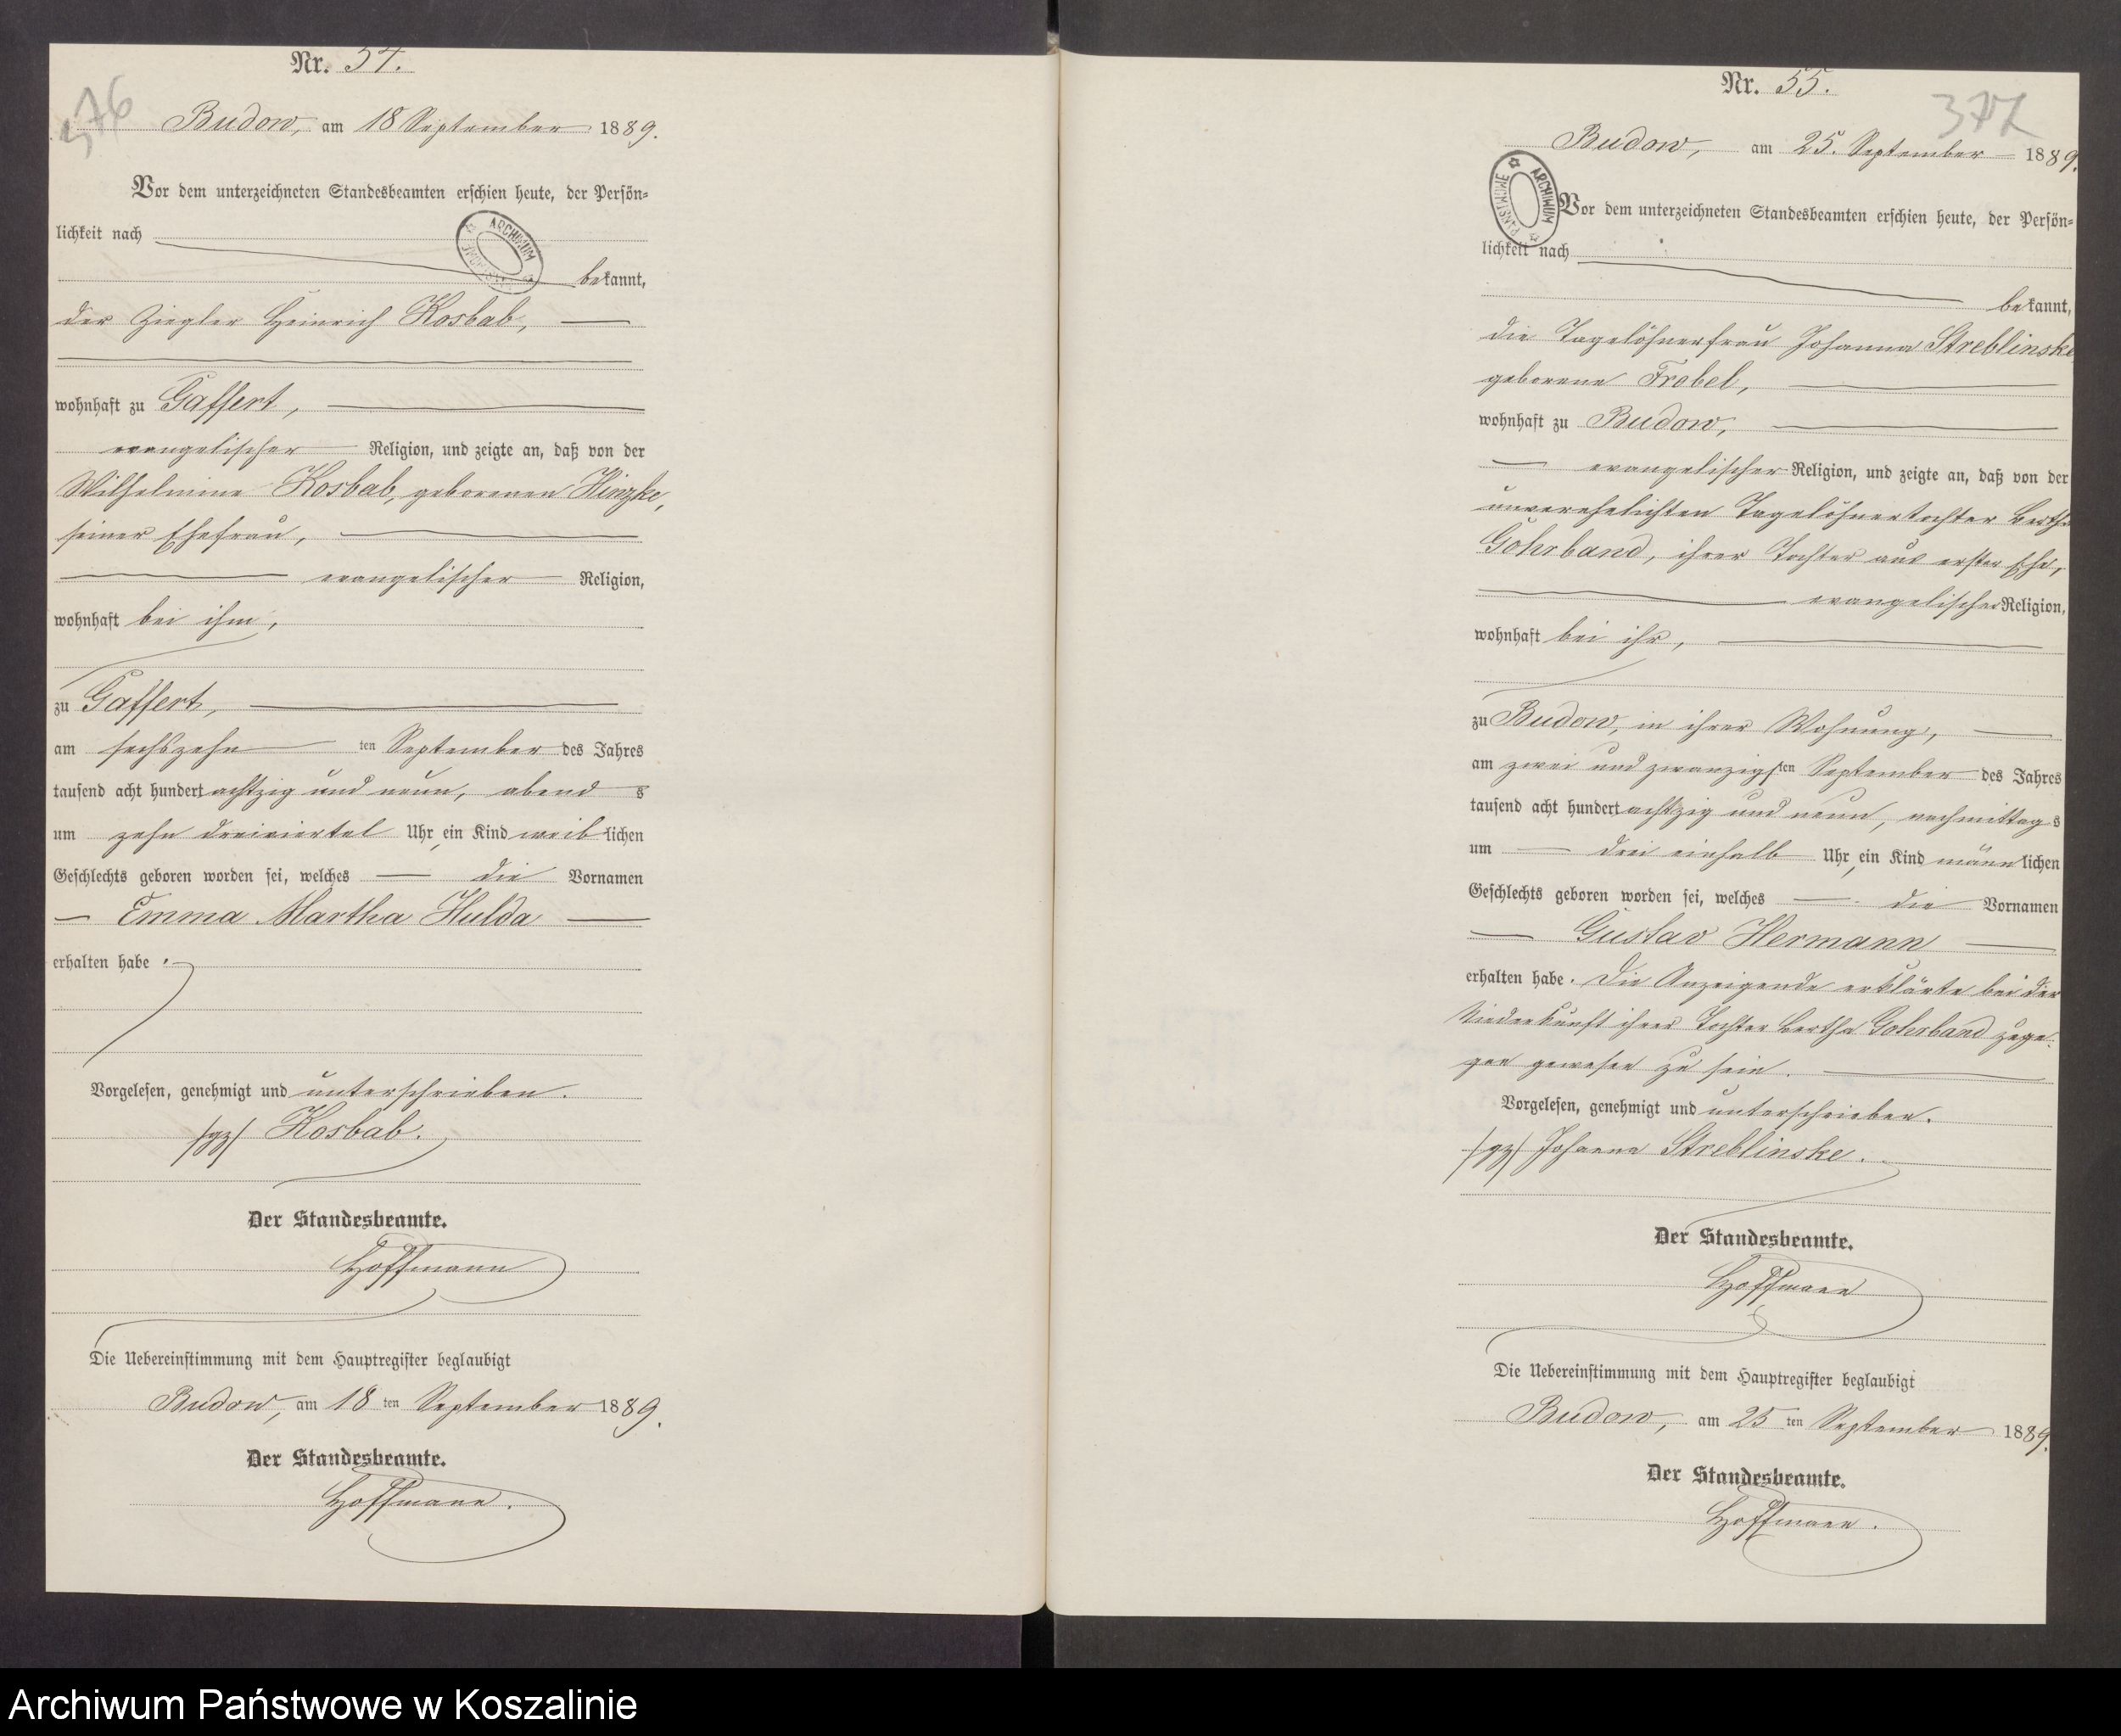 Nr. 54.
376
Budow, am 18 September 1889.
Vor dem unterzeichneten Standesbeamten erschien heute, der Persön-
lichkeit nach
ARCHIWUM
bekannt,
der Ziegler Heinrich Kosbab,
wohnhaft zu Gaffert,
evangelischer Religion, und zeigte an, daß von der
Wilhelmine Kosbab, geborenen Hinzke,
seiner Ehefrau,
evangelischer Religion,
wohnhaft bei ihm,
zu Gaffert,
am sechszehn ten September des Jahres
tausend acht hundert achtzig und neun, abend s
um zehn dreiviertel Uhr, ein Kind weiblichen
Geschlechts geboren worden sei, welches die Vornamen
Emma Martha Hulda
erhalten habe.
Vorgelesen, genehmigt und unterschrieben.
/gz/ Kosbab.
Der Standesbeamte.
Hoffmann
Die Uebereinstimmung mit dem Hauptregister beglaubigt
Budow, am 18 ten September 1889.
Der Standesbeamte.
Hoffmann.
Nr. 55.
377
Budow, am 25. September 1889.
ARCHIWUM PAŃSTWOWE
Vor dem unterzeichneten Standesbeamten erschien heute, der Persön-
lichkeit nach
bekannt,
die Tagelöhnerfrau Johanna Streblinske
geborene Frobel,
wohnhaft zu Budow,
evangelischer Religion, und zeigte an, daß von der
unverehelichten Tagelöhnertochter Bertha
Gohrband, ihrer Tochter aus erster Ehe,
evangelischer Religion,
wohnhaft bei ihr,
zu Budow, in ihrer Wohnung,
am zwei und zwanzigsten September des Jahres
tausend acht hundert achtzig und neun, nachmittag s
um drei einhalb Uhr, ein Kind männlichen
Geschlechts geboren worden sei, welches die Vornamen
Gustav Hermann
erhalten habe. Die Anzeigende erklärte bei der
Niederkunft ihrer Tochter Bertha Gohrband zuge-
gen gewesen zu sein.
Vorgelesen, genehmigt und unterschrieben.
/gz/ Johanna Streblinske.
Der Standesbeamte.
Hoffmann
Die Uebereinstimmung mit dem Hauptregister beglaubigt
Budow, am 25 ten September 1889.
Der Standesbeamte.
Hoffmann.
Archiwum Państwowe w Koszalinie